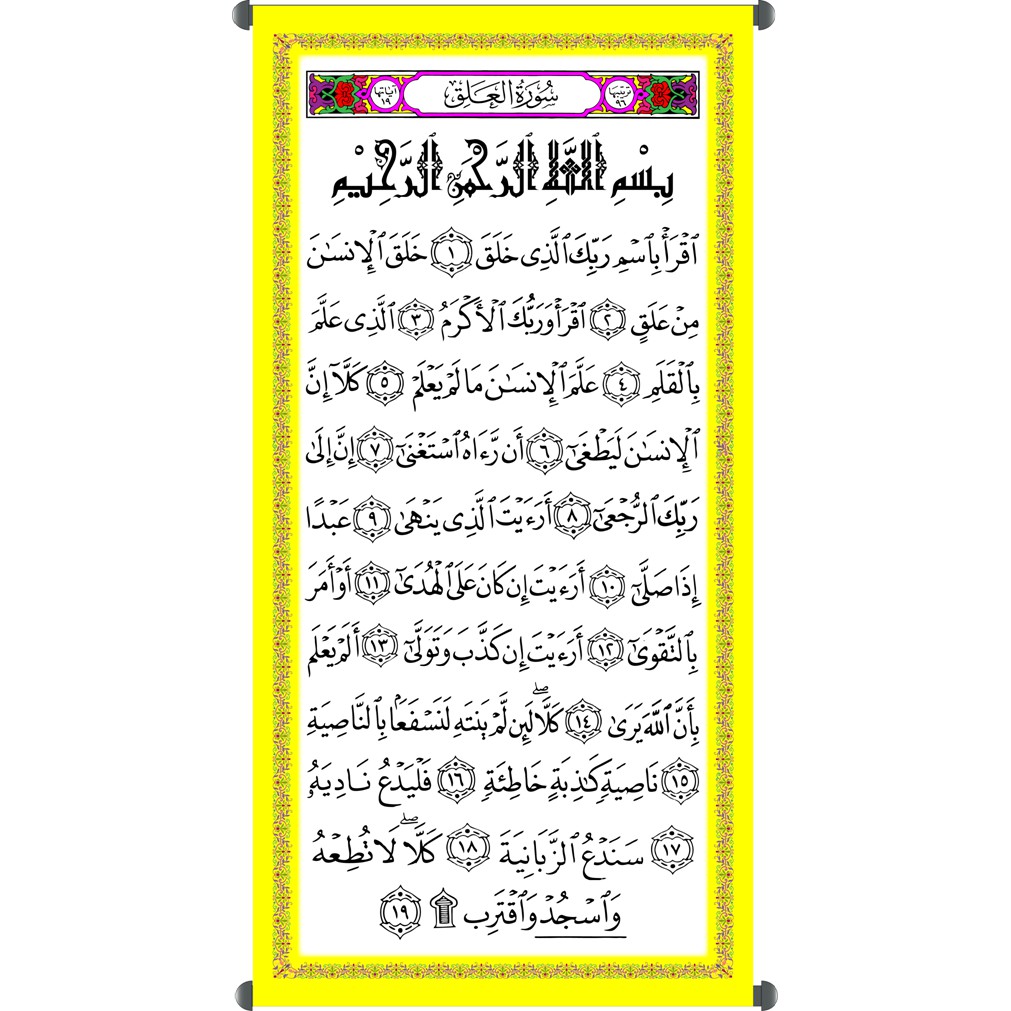 ترتيبها ٩٦ سُورَةُ العَلَقِ آياتها ١٩
بِسْمِ ٱللَّهِ ٱلرَّحْمَٰنِ ٱلرَّحِيمِ
ٱقْرَأْ بِٱسْمِ رَبِّكَ ٱلَّذِى خَلَقَ ١ خَلَقَ ٱلْإِنسَٰنَ
مِنْ عَلَقٍ ٢ ٱقْرَأْ وَرَبُّكَ ٱلْأَكْرَمُ ٣ ٱلَّذِى عَلَّمَ
بِٱلْقَلَمِ ٤ عَلَّمَ ٱلْإِنسَٰنَ مَا لَمْ يَعْلَمْ ٥ كَلَّآ إِنَّ
ٱلْإِنسَٰنَ لَيَطْغَىٰٓ ٦ أَن رَّءَاهُ ٱسْتَغْنَىٰٓ ٧ إِنَّ إِلَىٰ
رَبِّكَ ٱلرُّجْعَىٰٓ ٨ أَرَءَيْتَ ٱلَّذِى يَنْهَىٰ ٩ عَبْدًا
إِذَا صَلَّىٰٓ ١٠ أَرَءَيْتَ إِن كَانَ عَلَى ٱلْهُدَىٰٓ ١١ أَوْ أَمَرَ
بِٱلتَّقْوَىٰٓ ١٢ أَرَءَيْتَ إِن كَذَّبَ وَتَوَلَّىٰٓ ١٣ أَلَمْ يَعْلَم
بِأَنَّ ٱللَّهَ يَرَىٰ ١٤ كَلَّا ۖ لَئِن لَّمْ يَنتَهِ لَنَسْفَعًۢا بِٱلنَّاصِيَةِ
١٥ نَاصِيَةٍ كَٰذِبَةٍ خَاطِئَةٍ ١٦ فَلْيَدْعُ نَادِيَهُۥ
١٧ سَنَدْعُ ٱلزَّبَانِيَةَ ١٨ كَلَّا ۖ لَا تُطِعْهُ
وَٱسْجُدْ وَٱقْتَرِب ۩ ١٩